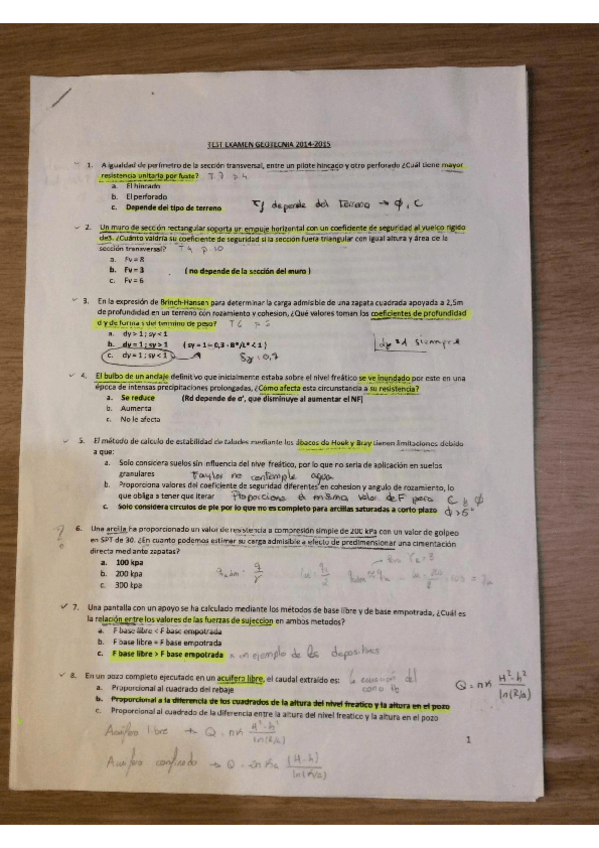 TEST EXAMEN GEOTECNIA 2014-2015
1. A igualdad de perímetro de la sección transversal, entre un pilote hincado y otro perforado ¿Cuál tiene mayor
resistencia unitaria por fuste? T.7
a. El hincado
b. El perforado
c. Depende del tipo de terreno
depende del terreno → Φ, C
2. Un muro de sección rectangular soporta un empuje horizontal con un coeficiente de seguridad al vuelco rígido
de3. ¿Cuánto valdría su coeficiente de seguridad si la sección fuera triangular con igual altura y área de la
sección transversal? T4 p.10
a. Fv = 8
b. Fv = 3 ( no depende de la sección del muro )
c. Fv = 6
3. En la expresión de Brinch-Hansen para determinar la carga admisible de una zapata cuadrada apoyada a 2,5m
de profundidad en un terreno con rozamiento y cohesion, ¿Qué valores toman los coeficientes de profundidad
d y de forma s del termino de peso? T6
a. dy > 1 ; sy < 1
b. dy = 1 ; sy > 1 ( sy = 1 – 0,3 · B*/L* < 1 )
c. dy = 1 ; sy < 1
siempre
Sy = 0,7
4. El bulbo de un anclaje definitivo que inicialmente estaba sobre el nivel freático se ve inundado por este en una
época de intensas precipitaciones prolongadas, ¿Cómo afecta esta circunstancia a su resistencia?
a. Se reduce (Rd depende de σ', que disminuye al aumentar el NF)
b. Aumenta
c. No le afecta
5. El método de calculo de estabilidad de taludes mediante los ábacos de Hoek y Bray tienen limitaciones debido
a que:
a. Solo considera suelos sin influencia del nivel freático, por lo que no seria de aplicación en suelos
granulares Taylor no contemple agua
b. Proporciona valores del coeficiente de seguridad diferentes en cohesion y angulo de rozamiento, lo
que obliga a tener que iterar Proporciona el mismo valor de F para C y Φ
c. Solo considera círculos de pie por lo que no es completo para arcillas saturadas a corto plazo Φ > 5°
6. Una arcilla ha proporcionado un valor de resistencia a compresión simple de 200 kPa con un valor de golpeo
en SPT de 30. ¿En cuanto podemos estimar su carga admisible a efecto de predimensionar una cimentación
directa mediante zapatas?
a. 100 kpa
b. 200 kpa
c. 300 kpa
7. Una pantalla con un apoyo se ha calculado mediante los métodos de base libre y de base empotrada, ¿Cuál es
la relación entre los valores de las fuerzas de sujeccion en ambos metodos?
a. F base libre < F base empotrada
b. F base libre = F base empotrada
c. F base libre > F base empotrada un ejemplo de las diapositivas
8. En un pozo completo ejecutado en un acuífero libre, el caudal extraido es:
a. Proporcional al cuadrado del rebaje
b. Proporcional a la diferencia de los cuadrados de la altura del nivel freatico y la altura en el pozo
c. Proporcional al cuadrado de la diferencia entre la altura del nivel freatico y la altura en el pozo
Q = πK H²-h² / ln(R/a)
Acuífero libre → Q = πK H²-h² / ln(R/a)
Acuífero confinado → Q = 2πKe [H-h] / ln(R/a)
1